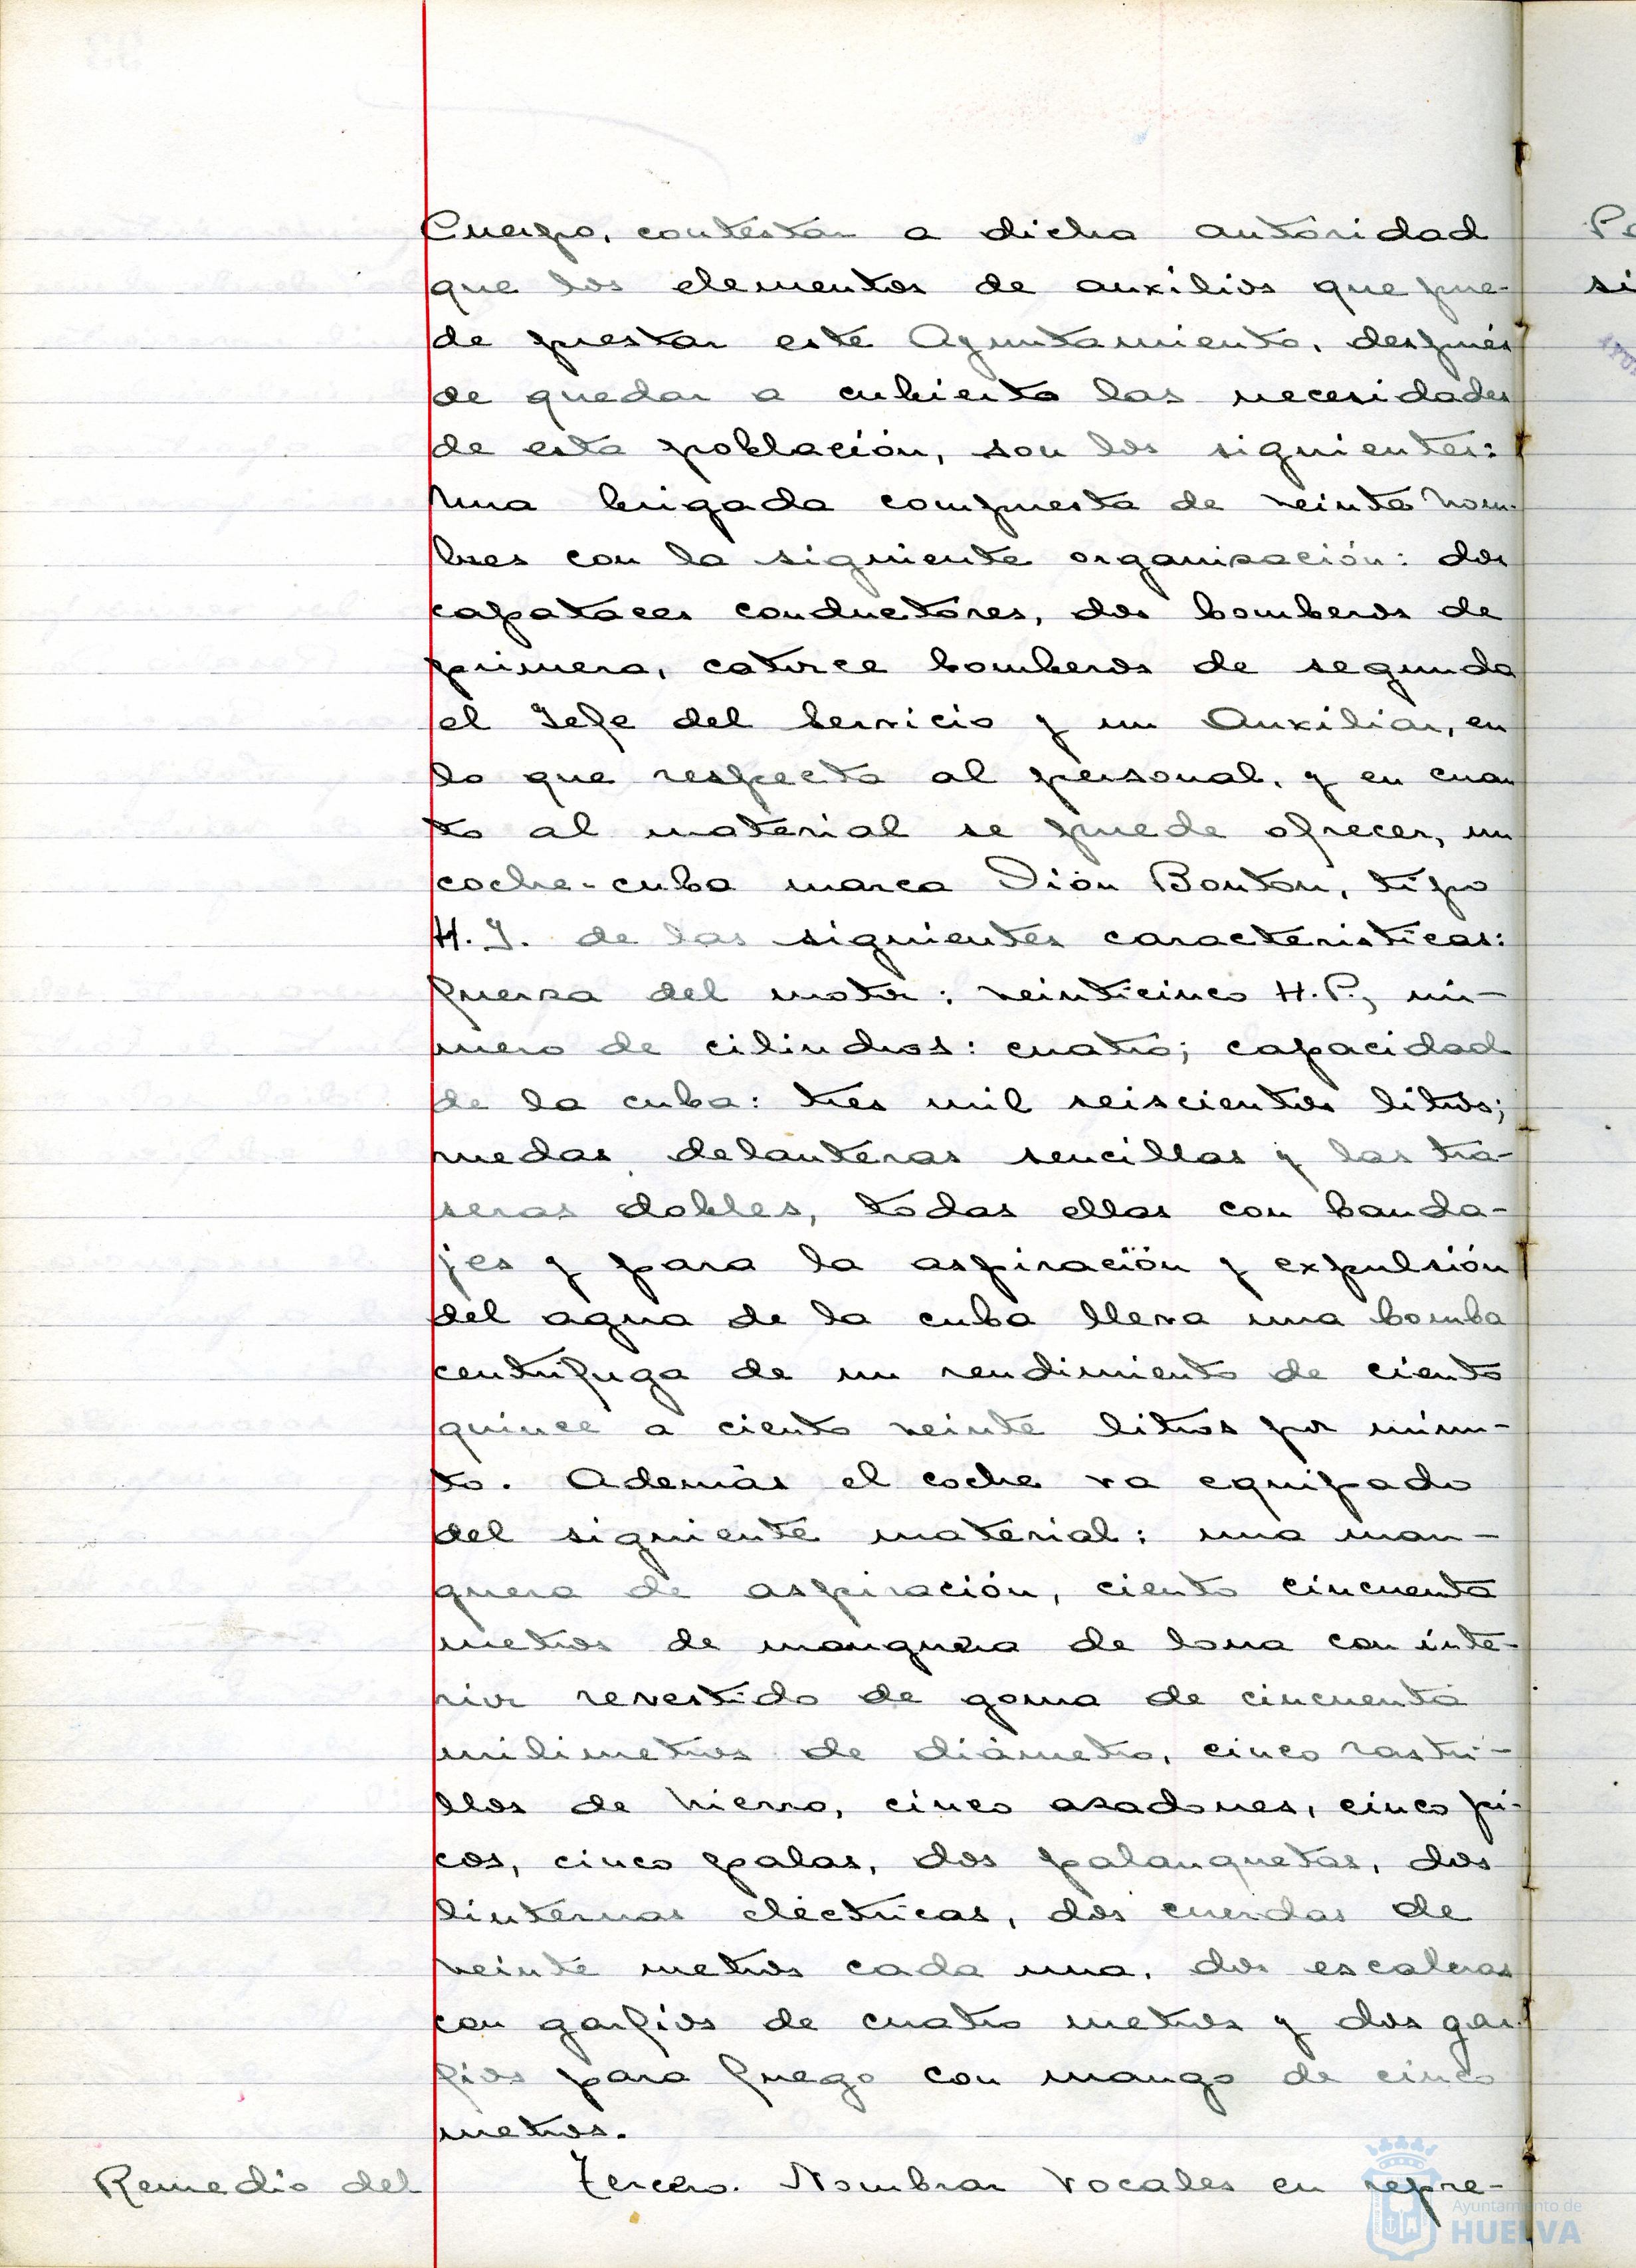 Cuerpo, contestar a dicha autoridad
que los elementos de auxilios que pue-
de prestar este Ayuntamiento, después
de quedar a cubierto las necesidades
de esta población, son los siguientes:
Una brigada compuesta de veinte hom-
bres con la siguiente organización: dos
capataces conductores, dos bomberos de
primera, catorce bomberos de segunda
el Jefe del Servicio y un Auxiliar, en
lo que respecta al personal, y en cuan
to al material se puede ofrecer, un
coche-cuba marca Dión Bouton, tipo
H.J. de las siguientes características:
fuerza del motor: veinticinco H.P., nú-
mero de cilindros: cuatro; capacidad
de la cuba: tres mil seiscientos litros;
ruedas delanteras sencillas y las tra-
seras dobles, todas ellas con banda-
jes y para la aspiración y expulsión
del agua de la cuba lleva una bomba
centrífuga de un rendimiento de ciento
quince a ciento veinte litros por minu-
to. Además el coche va equipado
del siguiente material: una man-
guera de aspiración, ciento cincuenta
metros de manguera de lona con inte-
rior revestido de goma de cincuenta
milimetros de diámetro, cinco rastri-
llos de hierro, cinco azadones, cinco pi-
cos, cinco palas, dos palanquetas, dos
linternas eléctricas, dos cuerdas de
veinte metros cada una, dos escaleras
con garfios de cuatro metros y dos gar-
fios para fuego con mango de cinco
metros.
Remedio del
Tercero. Nombrar Vocales en repre-
Ayuntamiento de
HUELVA